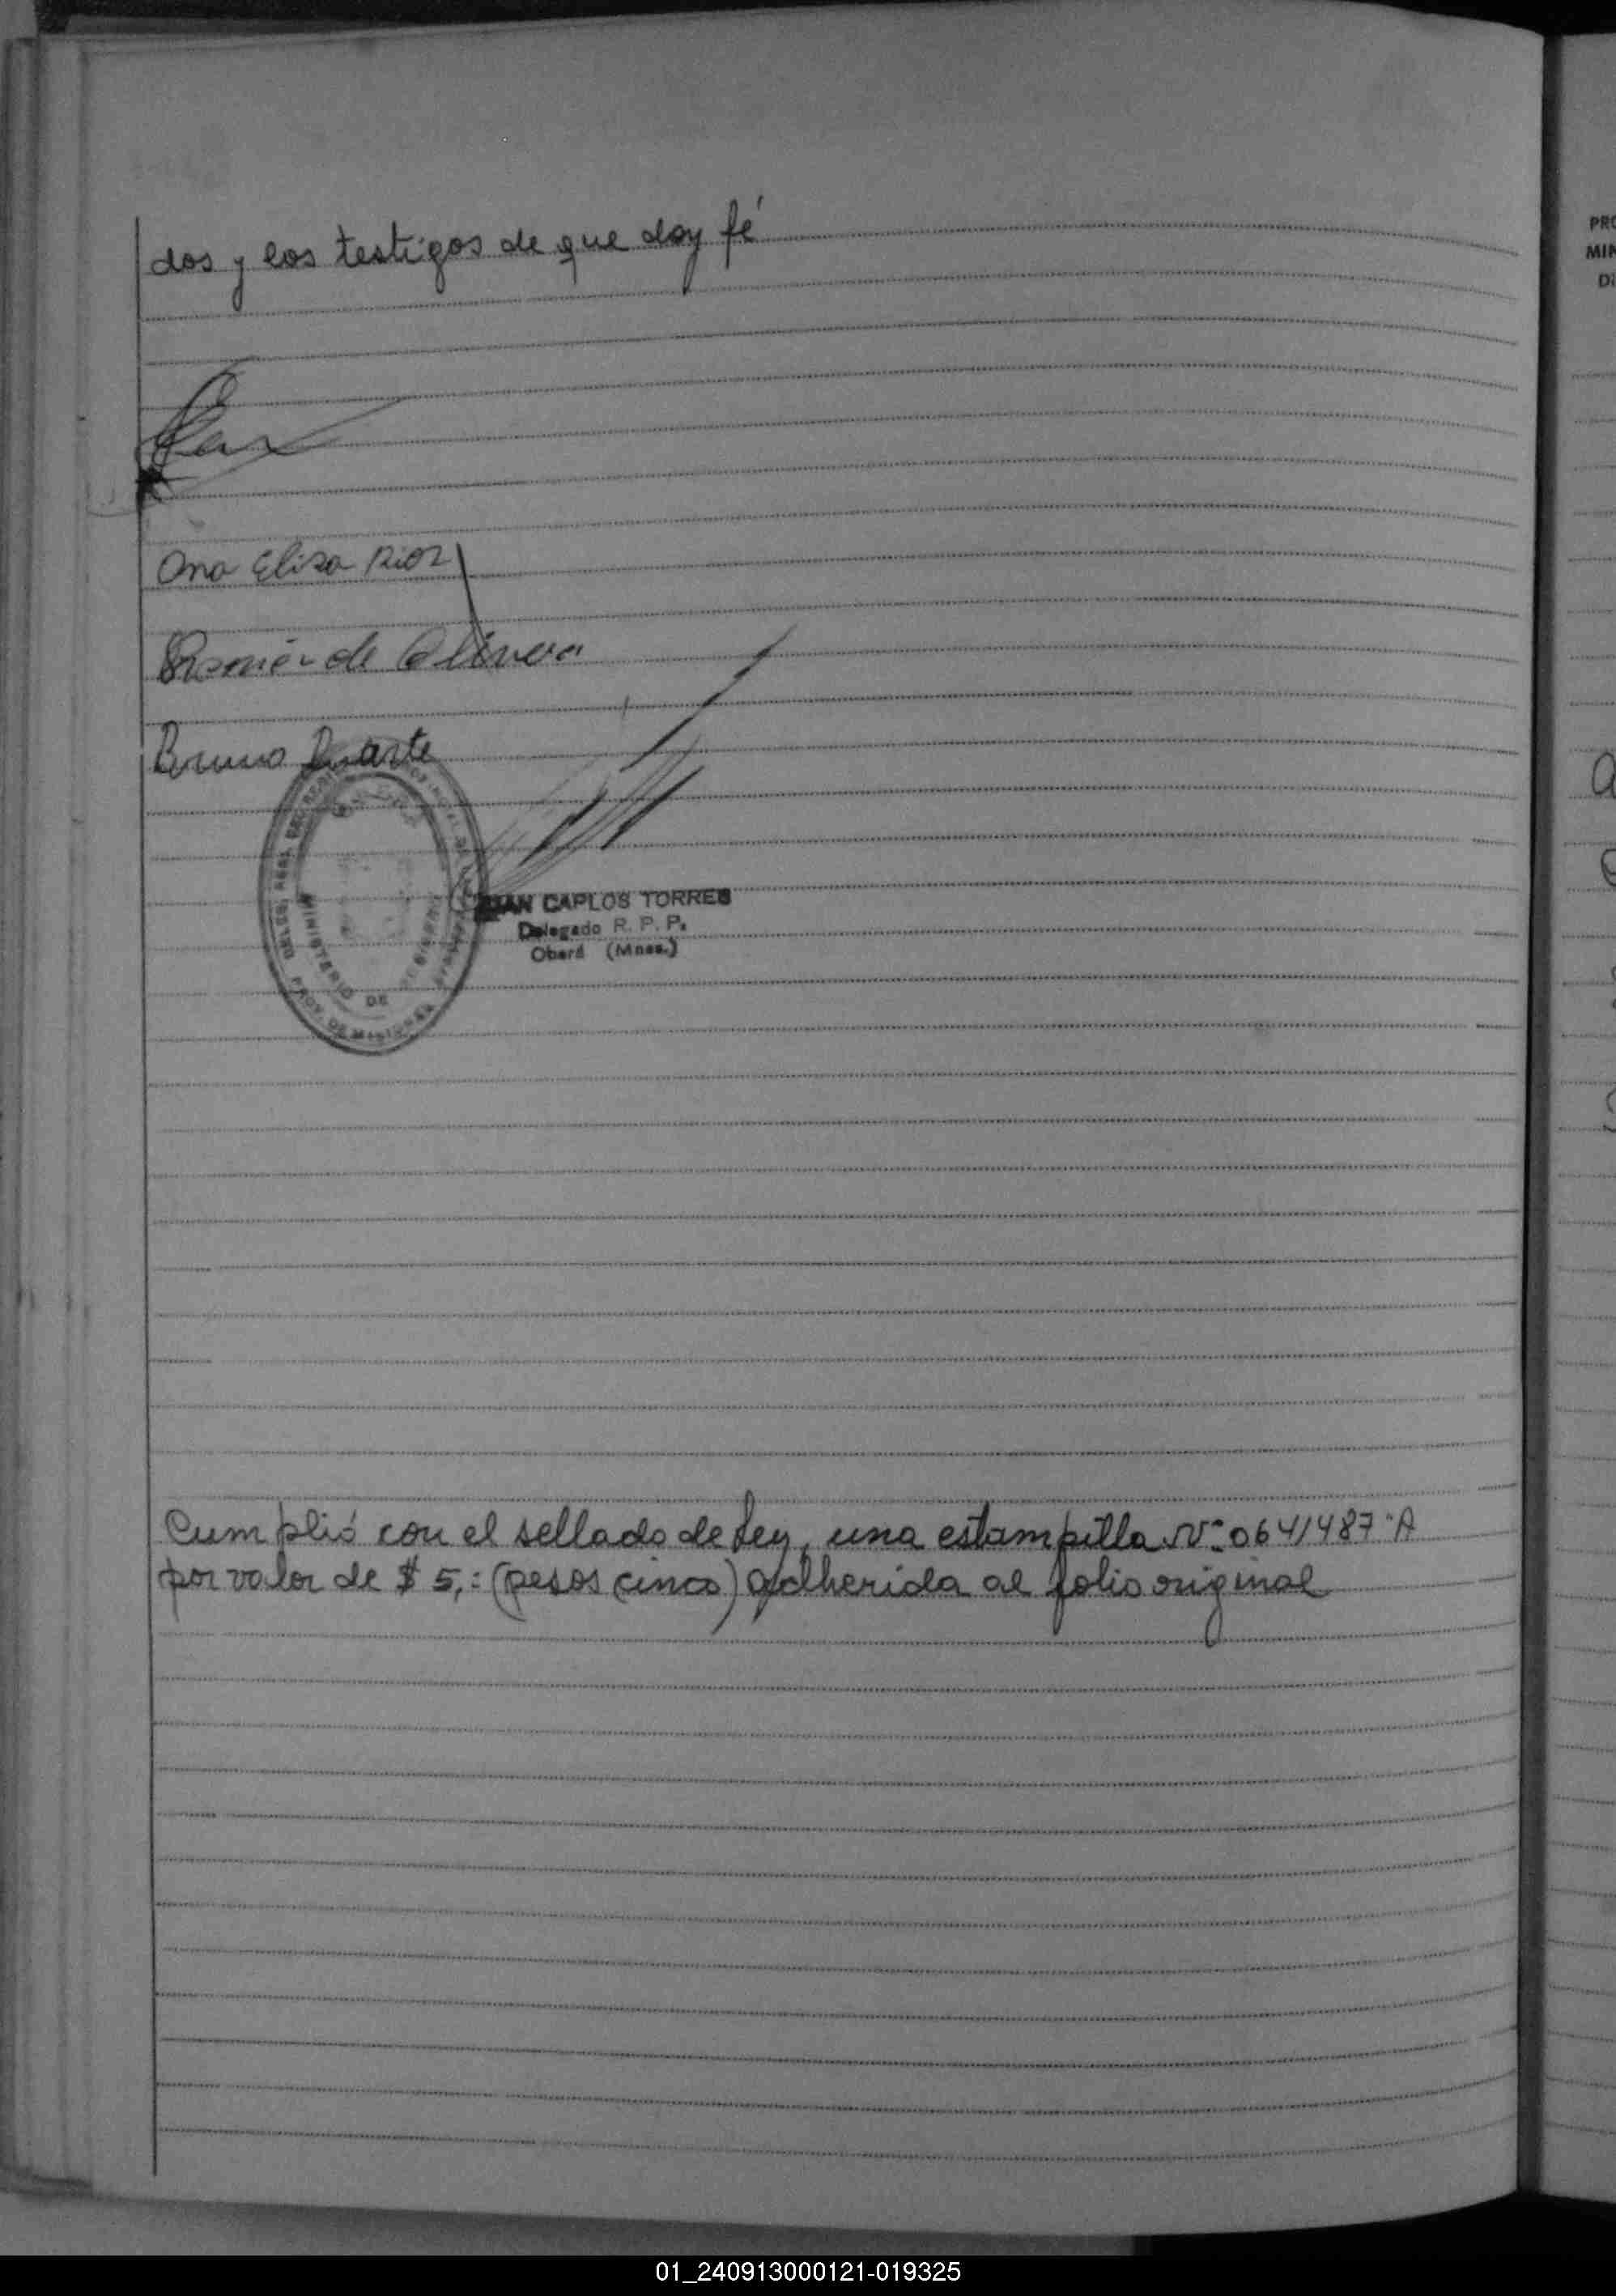 dos y los testigos de que doy fé
Ana Elisa Rios
de Olivera
Bruno Duarte
MINISTERIO DE
PROV. DE MISIONES
JUAN CARLOS TORRES
Delegado R. P. P.
Oberá (Mnes.)
Cumplió con el sellado de Ley, una estampilla Nº 0641487 "A
por valor de $ 5,= (pesos cinco) adherida al folio original
PRO
MIN
DI
01_240913000121-019325